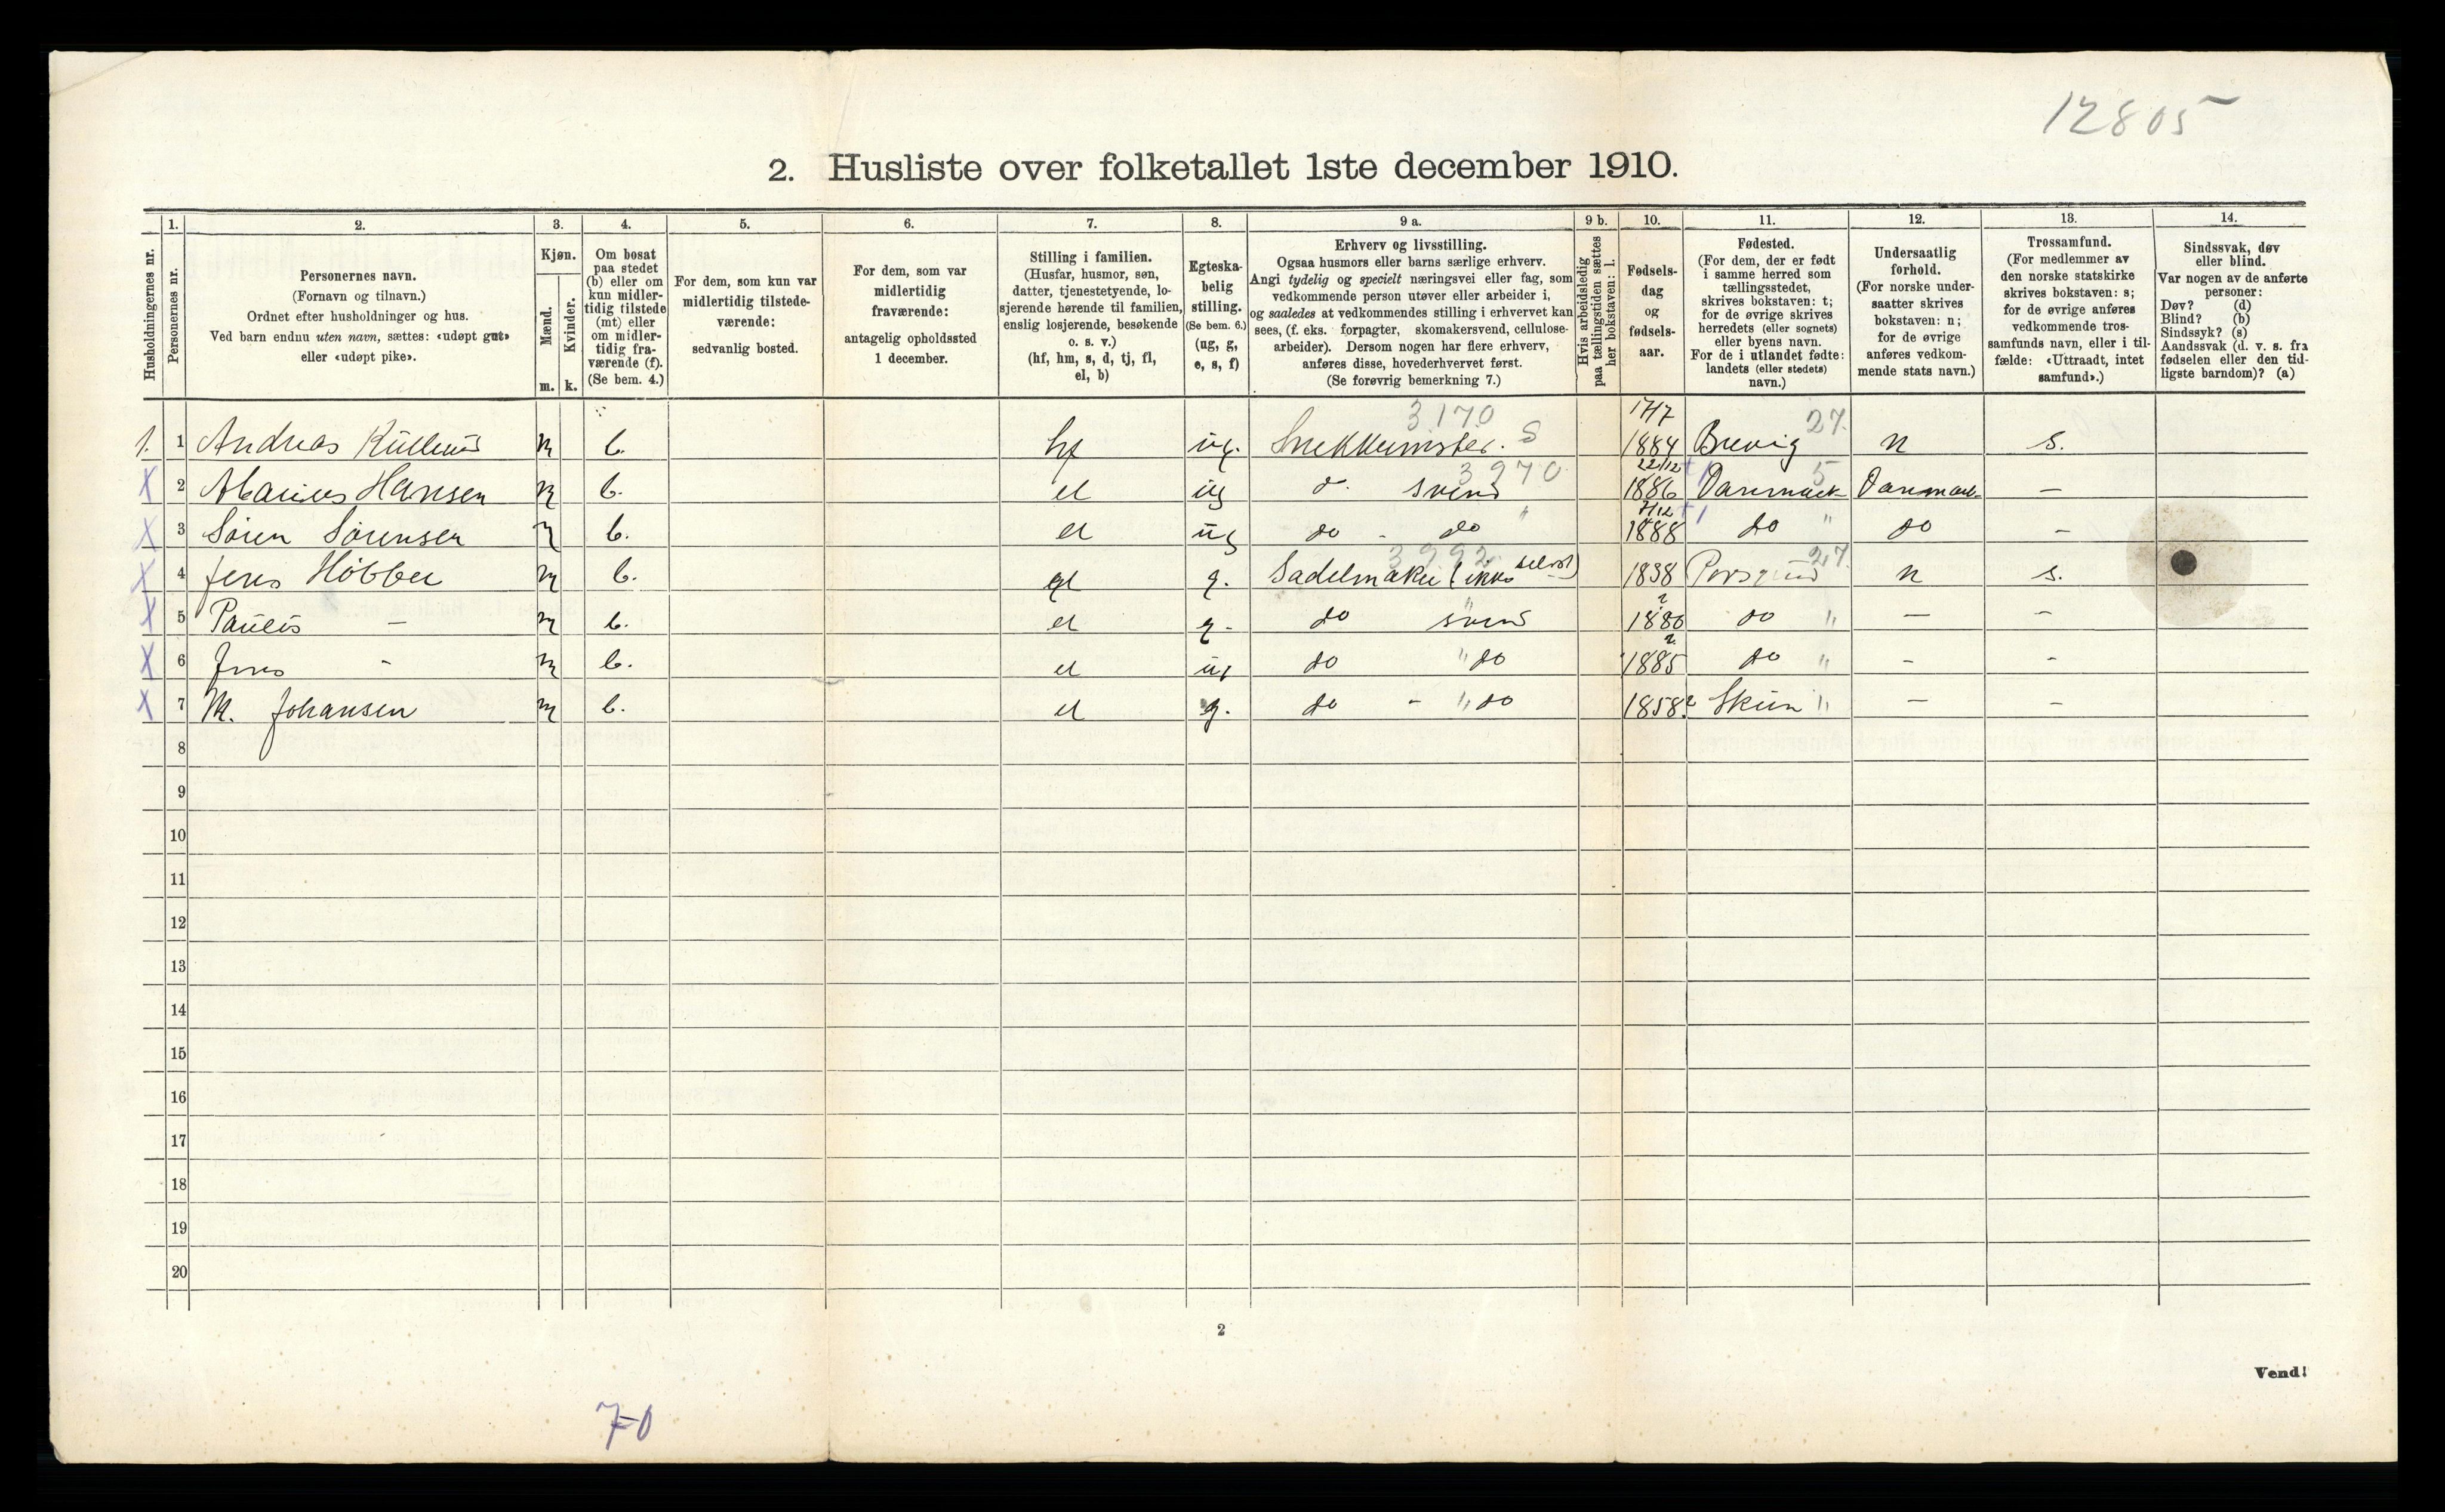 12805
2. Husliste over folketallet 1ste december 1910.
Husholdningernes nr.
1.
Personernes nr.
2.
Personernes navn.
(Fornavn og tilnavn.)
Ordnet efter husholdninger og hus.
Ved barn endnu uten navn, sættes: «udøpt gut»
eller «udøpt pike».
3.
Kjøn.
Mænd.
Kvinder.
m. k.
4.
Om bosat
paa stedet
(b) eller om
kun midler-
tidig tilstede
(mt) eller
om midler-
tidig fra-
værende (f).
(Se bem. 4.)
5.
For dem, som kun var
midlertidig tilstede-
værende:
sedvanlig bosted.
6.
For dem, som var
midlertidig
fraværende:
antagelig opholdssted
1 december.
7.
Stilling i familien.
(Husfar, husmor, søn,
datter, tjenestetyende, lo-
sjerende hørende til familien,
enslig losjerende, besøkende
o. s. v.)
(hf, hm, s, d, tj, fl,
el, b)
8.
Egteska-
belig
stilling.
(Se bem. 6.)
(ug, g,
e, s, f)
9 a.
Erhverv og livsstilling.
Ogsaa husmors eller barns særlige erhverv.
Angi tydelig og specielt næringsvei eller fag, som
vedkommende person utøver eller arbeider i,
og saaledes at vedkommendes stilling i erhvervet kan
sees, (f. eks. forpagter, skomakersvend, cellulose-
arbeider). Dersom nogen har flere erhverv,
anføres disse, hovederhvervet først.
(Se forøvrig bemerkning 7.)
9 b.
Hvis arbeidsledig
paa tællingstiden sættes
her bokstaven: l.
10.
Fødsels-
dag
og
fødsels-
aar.
11.
Fødested.
(For dem, der er født
i samme herred som
tællingsstedet,
skrives bokstaven: t;
for de øvrige skrives
herredets (eller sognets)
eller byens navn.
For de i utlandet fødte:
landets (eller stedets)
navn.)
12.
Undersaatlig
forhold.
(For norske under-
saatter skrives
bokstaven: n;
for de øvrige
anføres vedkom-
mende stats navn.)
13.
Trossamfund.
(For medlemmer av
den norske statskirke
skrives bokstaven: s;
for de øvrige anføres
vedkommende tros-
samfunds navn, eller i til-
fælde: «Uttraadt, intet
samfund».)
14.
Sindssvak, døv
eller blind.
Var nogen av de anførte
personer:
Døv? (d)
Blind? (b)
Sindssyk? (s)
Aandssvak (d. v. s. fra
fødselen eller den tid-
ligste barndom)? (a)
3170 17/7 27.
1. 1 Andreas m b. hf ug. S 1884 Brevig n s.
3970 22/12 5
X 2 Marius Hansen m b. el ug do svend 1886 Danmark Danmark —
7/12
X 3 Sören Sörensen m b. el ug do - do " 1888 do " do -
3992 27.
X 4 Jens Höbber m b. el g. Sadelmaker (ikke selvst) 1838 Porsgrund n s.
X 5 Paulus - m b. el g. do " svend ? 1880 do " — -
X 6 Jens - m b. el ug do " do ? 1885 do " - -
X 7 M. Johansen m b. el g. do - " do 1858? Skien " — -
8
9
10
11
12
13
14
15
16
17
18
19
20
2
Vend!
7-0